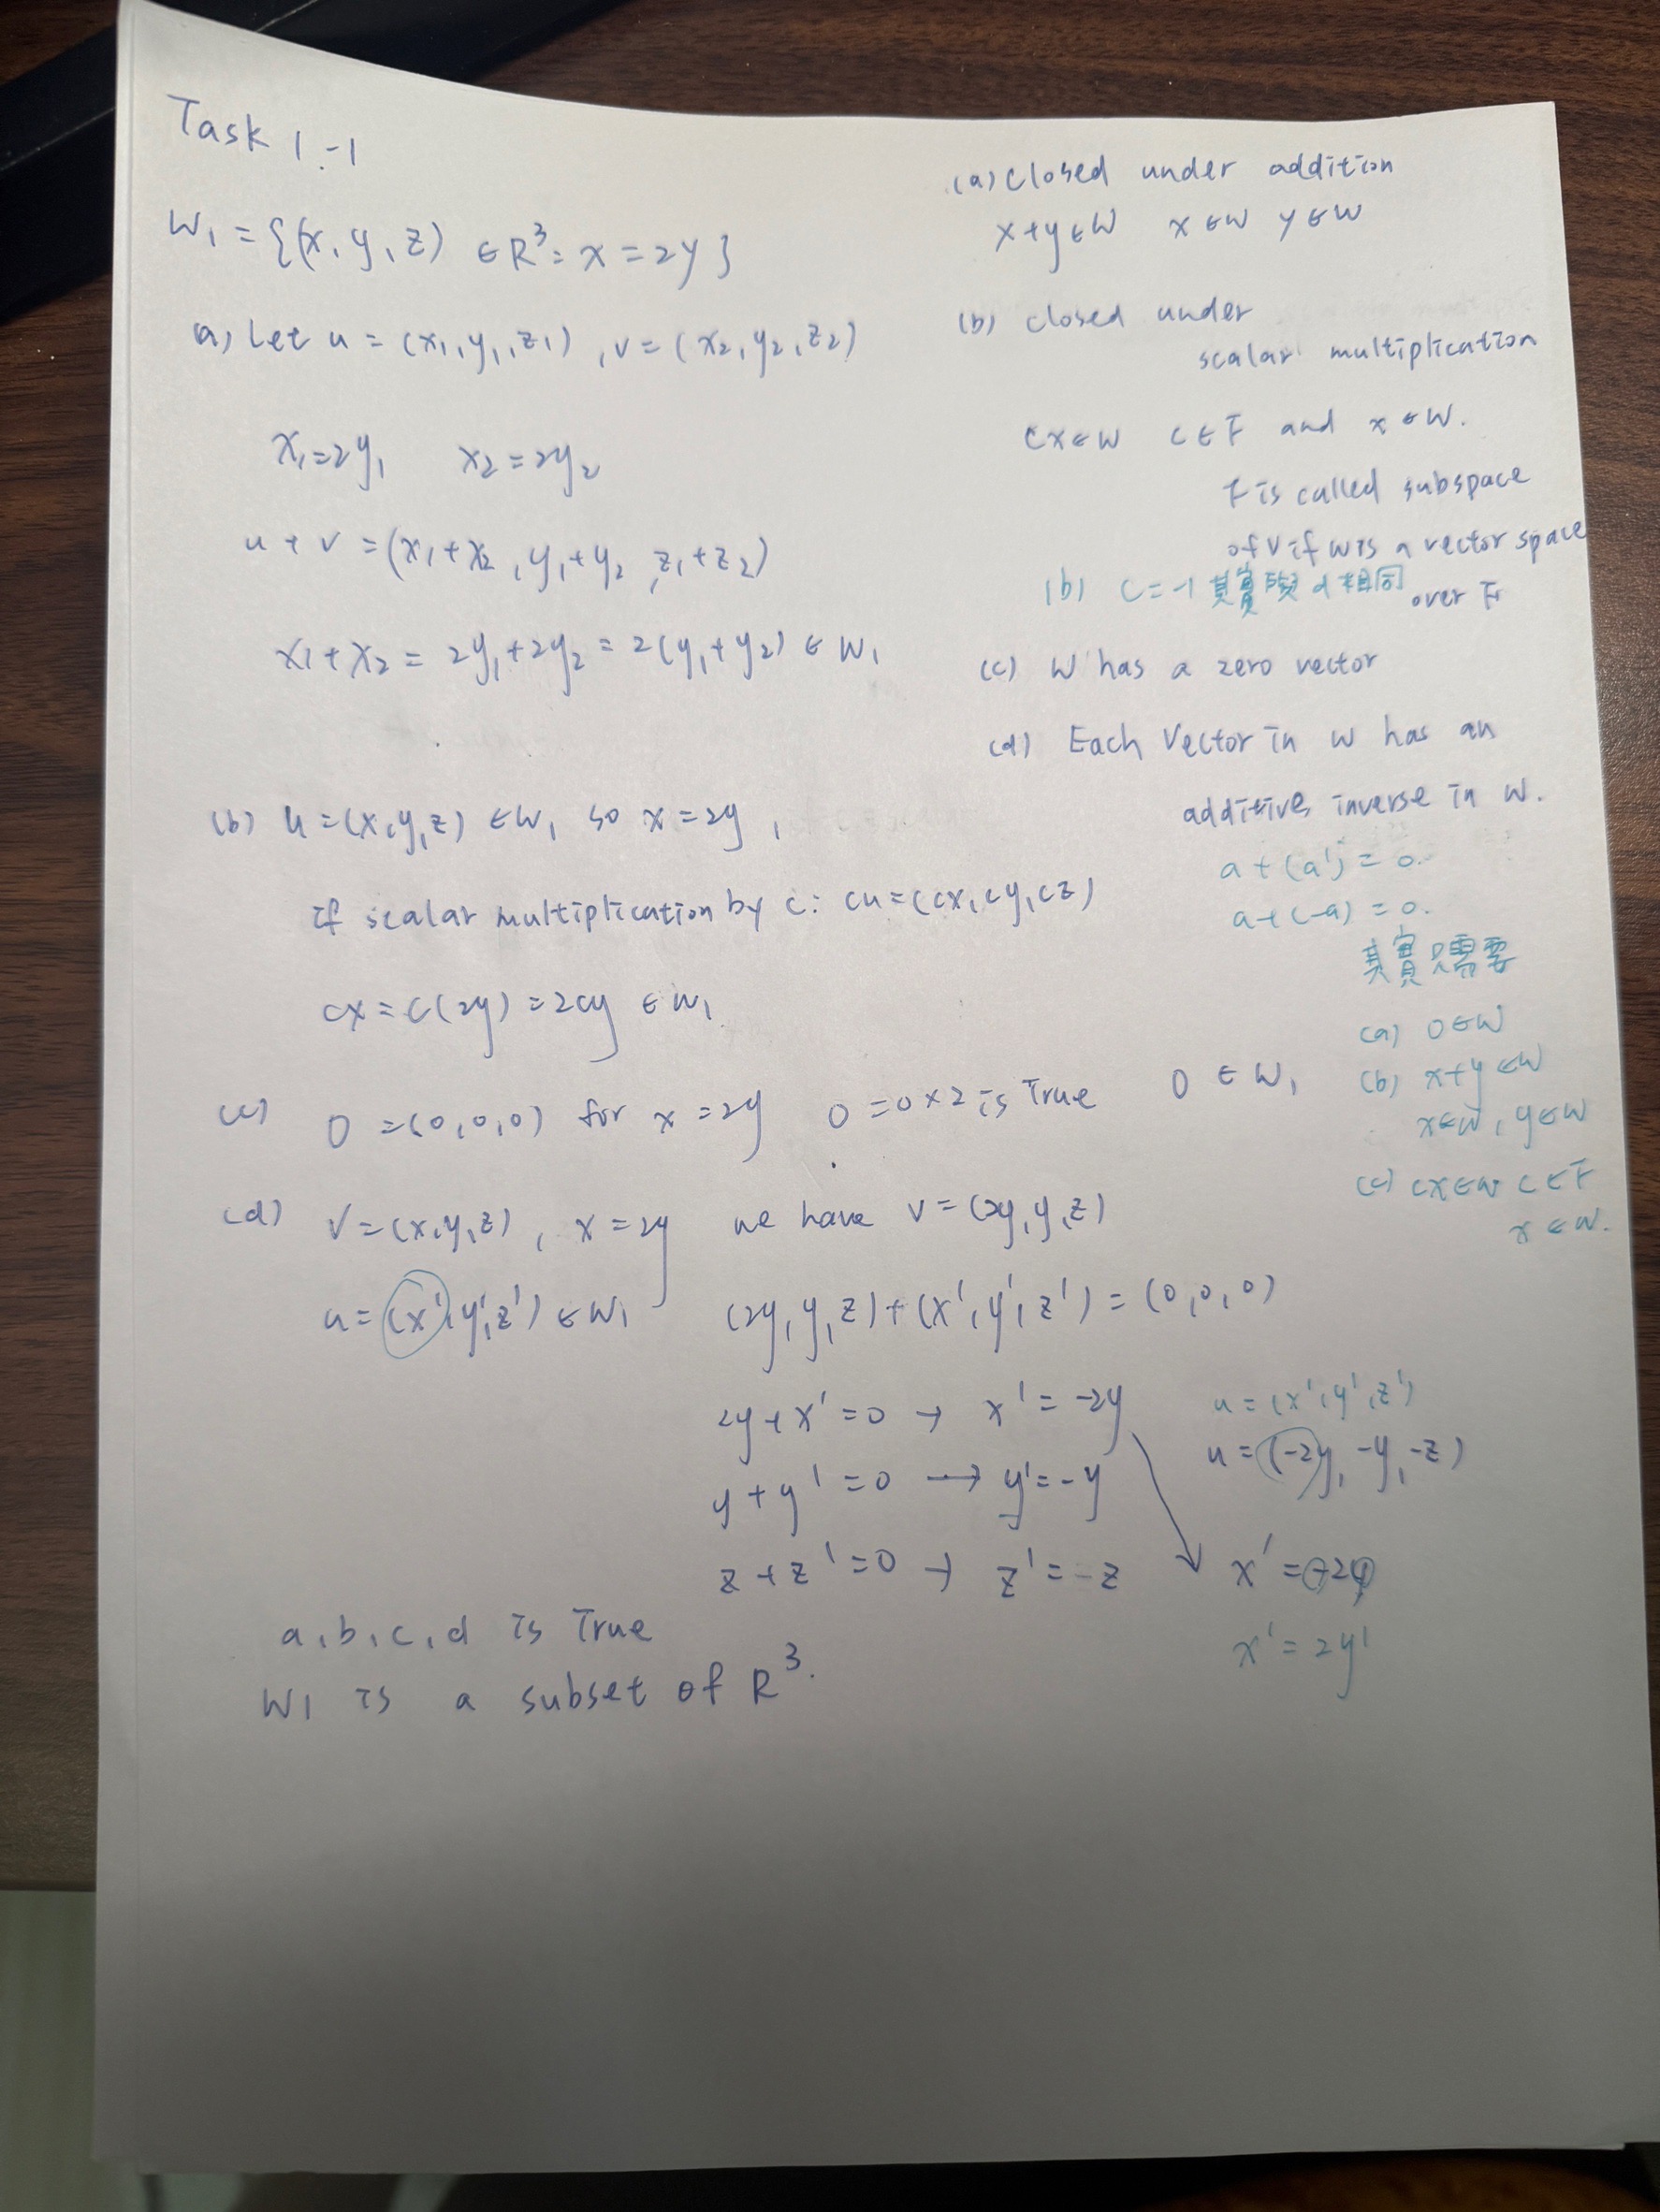 Task 1.-1
W₁ = {(x, y, z) ∈ R³: x = 2y}
a) Let u = (x₁, y₁, z₁), v = (x₂, y₂, z₂)
x₁=2y₁ x₂=2y₂
u + v = (x₁+x₂, y₁+y₂, z₁+z₂)
x₁+x₂ = 2y₁+2y₂ = 2(y₁+y₂) ∈ W₁
(b) u = (x, y, z) ∈ W₁ so x = 2y,
if scalar multiplication by c: cu = (cx, cy, cz)
cx = c(2y) = 2cy ∈ W₁
(c) 0 = (0, 0, 0) for x = 2y 0 = 0×2 is True 0 ∈ W₁
(d) V = (x, y, z), x = 2y we have v = (2y, y, z)
u = (x', y', z') ∈ W₁ (2y, y, z) + (x', y', z') = (0, 0, 0)
2y + x' = 0 → x' = -2y
y + y' = 0 → y' = -y
z + z' = 0 → z' = -z
u = (x', y', z')
u = (-2y, -y, -z)
x' = -2y
x' = 2y'
a, b, c, d is True
W1 is a subset of R³.
(a) closed under addition
x+y ∈ W x ∈ W y ∈ W
(b) closed under
scalar multiplication
cx ∈ W c ∈ F and x ∈ W.
F is called subspace
of V if W is a vector space
over F
(b) c = -1 其實與d相同
(c) W has a zero vector
(d) Each Vector in W has an
additive inverse in W.
a + (a') = 0.
a + (-a) = 0.
其實只需要
(a) 0 ∈ W
(b) x+y ∈ W
x ∈ W, y ∈ W
(c) cx ∈ W c ∈ F
x ∈ W.